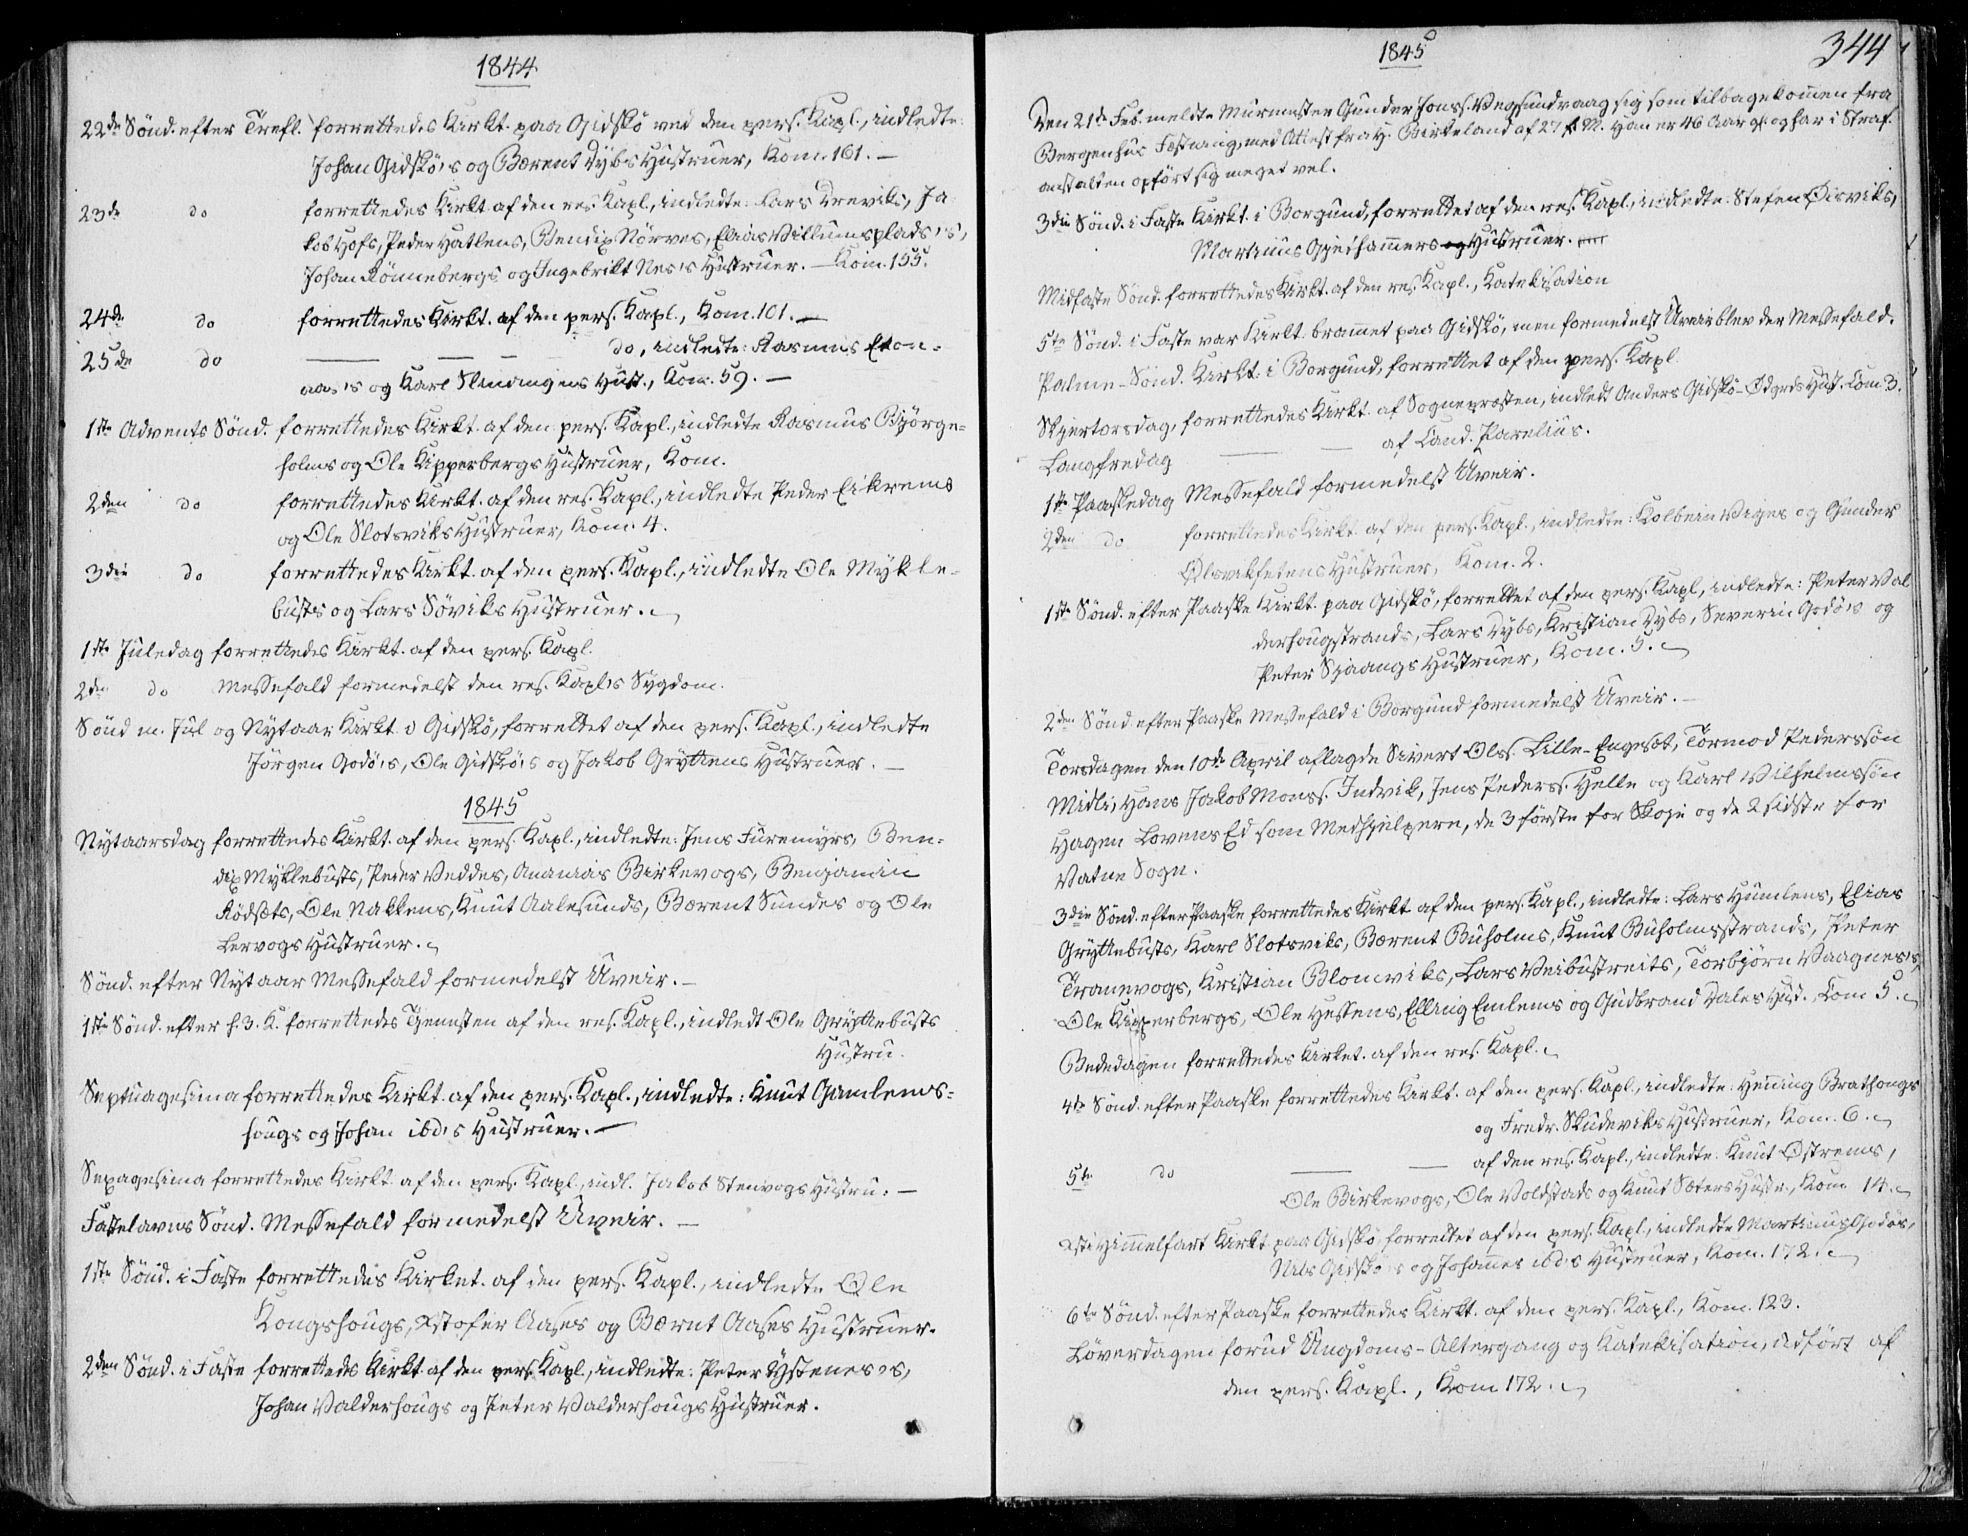 1844
22de Sönd. efter Trefl. forrettedes Kirkt. paa Gidskö ved den pers. Kapl., indledte:
Johan Gidskö's og Bærent Dybs Hustruer, Kom. 161. —
23de do forrettedes Kirkt. af den res. Kapl., indledte: Lars Dreviks, Ja-
kob Hofs, Peder Hatlens, Bendix Nörves, Elias Villumsplads's,
Johan Rönnebergs og Ingebrikt Nes's Hustruer. — Kom. 155.
24de do forrettedes Kirkt. af den pers. Kapl., Kom. 101. —
25de do — — — do, indledte: Rasmus Eken-
aas's og Karl Slinningens Hust., Kom. 59. —
1ste Advents Sönd. forrettedes Kirkt. af den pers. Kapl., indledte Rasmus Björge-
holms og Ole Kipperbergs Hustruer, Kom.
2den do forrettedes Kirkt. af den res. Kapl., indledte Peder Eikrems
og Ole Slotsviks Hustruer, Kom. 4.
3die do forrettedes Kirkt. af den pers. Kapl., indledte Ole Mykle-
busts og Lars Söviks Hustruer.
1ste Juledag forrettedes Kirkt. af den pers. Kapl.
2den do Messefald formedelst den res. Kapl's Sygdom.
Sönd m. Jul og Nytaar Kirkt. i Gidskö, forrettet af den pers. Kapl., indledte
Jörgen Godö's, Ole Gidskö's og Jakob Gryttens Hustruer. —
1845
Nytaarsdag forrettedes Kirkt. af den pers. Kapl., indledte: Jens Furemyrs, Ben-
dix Myklebusts, Peder Veddes, Ananias Birkevogs, Benjamin
Rödsets, Ole Nakkens, Knut Aalesunds, Bærent Sundes og Ole
Lervogs Hustruer.
Sönd. efter Nytaar Messefald formedelst Uveir. —
1ste Sönd. efter h. 3. K. forrettedes Tjenesten af den res. Kapl., indledt Ole Gryttebusts
Hustru.
Septuagesima forrettedes Kirkt. af den pers. Kapl., indledte: Knut Gamlems-
hougs og Johan ibd's Hustruer. —
Sexagesima forrettedes Kirkt. af den pers. Kapl., indl. Jakob Stenvogs Hustru. —
Fastelavns Sönd. Messefald formedelst Uveir. —
1ste Sönd. i Faste forrettedes Kirket. af den pers. Kapl., indledte Ole
Kongshougs, Xstofer Aases og Bærnt Aases Hustruer.
2den Sönd. i Faste forrettedes Kirkt. af den pers. Kapl., indledte: Peter Ystenes's,
Johan Valderhougs og Peter Valderhougs Hustruer.
1845
344
Den 21de Feb. meldte Murmester Gunder Jonss. Vegsundvaag sig som tilbagekommen fra
Bergenhus Fæstning, med Attest fra H. Birkeland af 27 f. M. Han er 46 Aar gl. og har i Straf-
anstalten opfört sig meget vel.
3die Sönd. i Faste Kirkt. i Borgund, forrettet af den res. Kapl., indledte: Stefen Öisviks,
Martinus Gjedhammers og Hustruer.
Midfaste Sönd. forrettedes Kirkt. af den res. Kapl., Katekisation
5te Sönd. i Faste var Kirkt. bramet paa Gidskö, men formedelst Uveir blev der Messefald.
Palme-Sönd. Kirkt. i Borgund, forrettet af den pers. Kapl.
Skjertorsdag, forrettedes Kirkt. af Sognepræsten, indledt Anders Gidskö-Ödgrds Hust. Kom 3.
Langfredag — — af Cand. Parelius.
1ste Paaskedag Messefald formedelst Uveir.
2den do forrettedes Kirkt. af den pers. Kapl., indledte: Kolbein Viges og Gunder
Ölsvikfetens Hustruer, Kom. 2.
1ste Sönd. efter Paaske Kirkt. paa Gidskö, forrettet af den pers. Kapl., indledte: Peter Val-
derhougstrands, Lars Dybs, Kristian Dybs, Severin Godö's og
Peter Skjaangs Hustruer, Kom. 5.
2den Sönd. efter Paaske Messefald i Borgund formedelst Uveir. —
Torsdagen den 10de April aflagde Sivert Olss. Lille-Engeset, Tormod Pederssön
Midli, Hans Jakob Monss. Indvik, Jens Pederss. Helle og Karl Vilhelmssön
Hagen Lovens Ed som Medhjelpere, de 3 förste for Skoje og de 2 sidste for
Vatne Sogn.
3die Sönd. efter Paaske forrettedes Kirkt. af den pers. Kapl., indledte: Lars Humlens, Elias
Gryttebusts, Karl Slotsviks, Bærent Buholms, Knut Buholmsstrands, Peter
Tranevogs, Kristian Blomviks, Lars Veibustreits, Torbjörn Vaagnes's,
Ole Kipperbergs, Ole Hessens, Elling Emlems og Gudbrand Dales Hust. Kom 5.
Bededagen forrettedes Kirket. af den res. Kapl.
4de Sönd. efter Paaske forrettedes Kirkt. af den pers. Kapl., indledte: Hening Brathougs
og Fredr. Skudeviks Hustruer, Kom. 6.
5te do — — af den res. Kapl., indledte: Knut Östrems,
Ole Birkevogs, Ole Voldstads og Knut Sæters Hustr., Kom 14.
Xsti Himmelfart Kirkt. paa Gidskö, forrettet af den pers. Kapl., indledte Martinus Godös,
Nils Gidskö's og Johannes ibd's Hustruer, Kom. 172.
6te Sönd. efter Paaske forrettedes Kirkt. af den pers. Kapl., Kom. 123.
Löverdagen forud Ungdoms-Altergang og Katekisation, udfört af
den pers. Kapl., Kom 172.